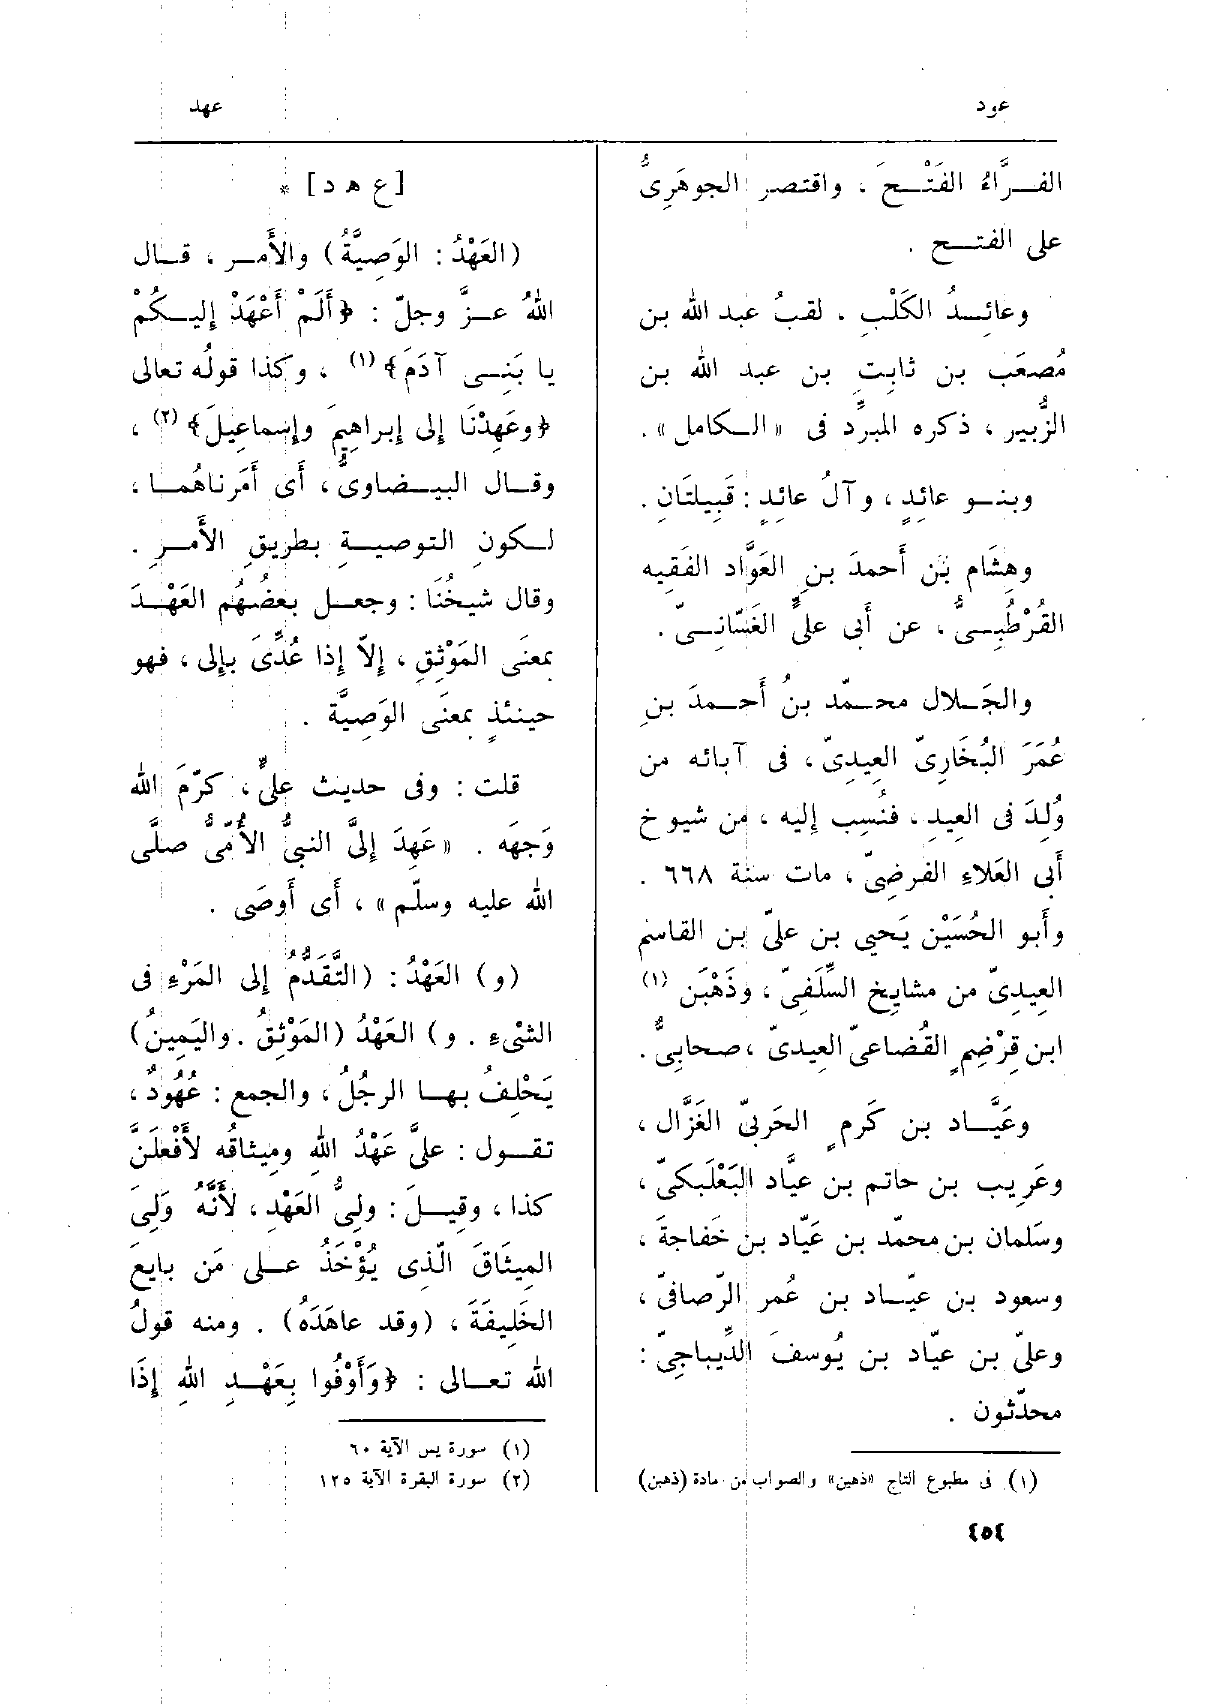 عود
عهد
الفــرَّاءُ الفَتْــحَ ، واقتصر الجوهَرِىُّ
على الفتــح .
وعائِــدُ الكَلْبِ . لقبُ عبد الله بن
مُصعَب بن ثابتِ بن عبد الله بن
الزُّبير ، ذكره المبرِّد فى « الــكامل » .
وبنــو عائِدٍ ، وآلُ عائِدٍ : قَبِيلتَانِ .
وهِشَام بَن أَحمدَ بنِ العَوَّاد الفَقِيه
القُرْطُبِــىُّ ، عن أَبى علىٍّ الغَسّانِــىّ .
والجَــلال محمــّد بنُ أَحــمدَ بنِ
عُمَرَ البُخَارِىّ العِيدِىّ ، فى آبائه من
وُلِدَ فى العِيدِ ، فنُسِب إليه ، من شيوخ
أَبى العَلاءِ الفرضِىّ ، مات سنة ٦٦٨ .
وأَبو الحُسَيْن يَحيى بن علىّ بن القاسم
العِيدِىّ من مشايخ السِّلَفِىّ ، وذَهْبَن (١)
ابن قِرْضِمٍ القُضَاعىّ العِيدىّ ، صحابىٌّ .
وعَيَّــاد بن كَرَمٍ الحَربىّ الغَزَّال ،
وعَرِيب بن حاتم بن عيَّاد البَعْلَبكىّ ،
وسَلمان بن محمّد بن عَيّاد بن خَفاجةَ ،
وسعود بن عيّــاد بن عُمر الرّصافىّ ،
وعلىّ بن عيّاد بن يُوسفَ الدِّيباجِىّ :
محدّثون .
(١) فى مطبوع التاج «ذهين» والصواب من مادة (ذهبن)
[ع هـ د] *
(العَهْدُ : الوَصِيَّةُ) والأَمــر ، قــال
اللهُ عــزَّ وجلّ : ﴿أَلَمْ أَعْهَدْ إِليــكُمْ
يا بَنِــى آدَمَ﴾ (١) ، وكذا قولُه تعالى
﴿وعَهِدْنَا إلى إبراهِيمَ وإسْماعِيلَ﴾ (٢) ،
وقــال البيــضاوىُّ ، أَى أَمَرناهُمــا ،
لــكونِ التوصيــةِ بطريقِ الأَمــرِ .
وقال شيخُنَا : وجعــل بعضُهُم العَهْــدَ
بمعنَى المَوْثِقِ ، إِلاّ إذا عُدِّىَ بإِلى ، فهو
حينئذٍ بمعنَى الوَصِيَّة .
قلت : وفى حديث علىٍّ ، كرّمَ الله
وَجهَه . « عَهِدَ إِلىَّ النبىُّ الأُمِّىُّ صلَّى
الله عليه وسلّم » ، أَى أَوصَى .
(و) العَهْدُ : (التَّقَدُّمُ إلى المَرْءِ فى
الشىْءِ . و) العَهْدُ (المَوْثِقُ . واليَمِينُ)
يَحْلِفُ بهــا الرجُلُ ، والجمع : عُهُودٌ ،
تقــول : علىَّ عَهْدُ اللهِ ومِيثاقُه لأَفْعلَنَّ
كذا ، وقِيــلَ : ولِىُّ العَهْدِ ، لأَنَّهُ وَلِىَ
المِيثَاقَ الّذى يُؤْخَذُ عــلى مَن بايعَ
الخَلِيفَةَ ، (وقد عاهَدَهُ) . ومنه قولُ
الله تعــالى : ﴿وَأَوْفُوا بِعَهْــدِ اللهِ إِذَا
(١) سورة يس الآية ٦٠
(٢) سورة البقرة الآية ١٢٥
٤٥٤